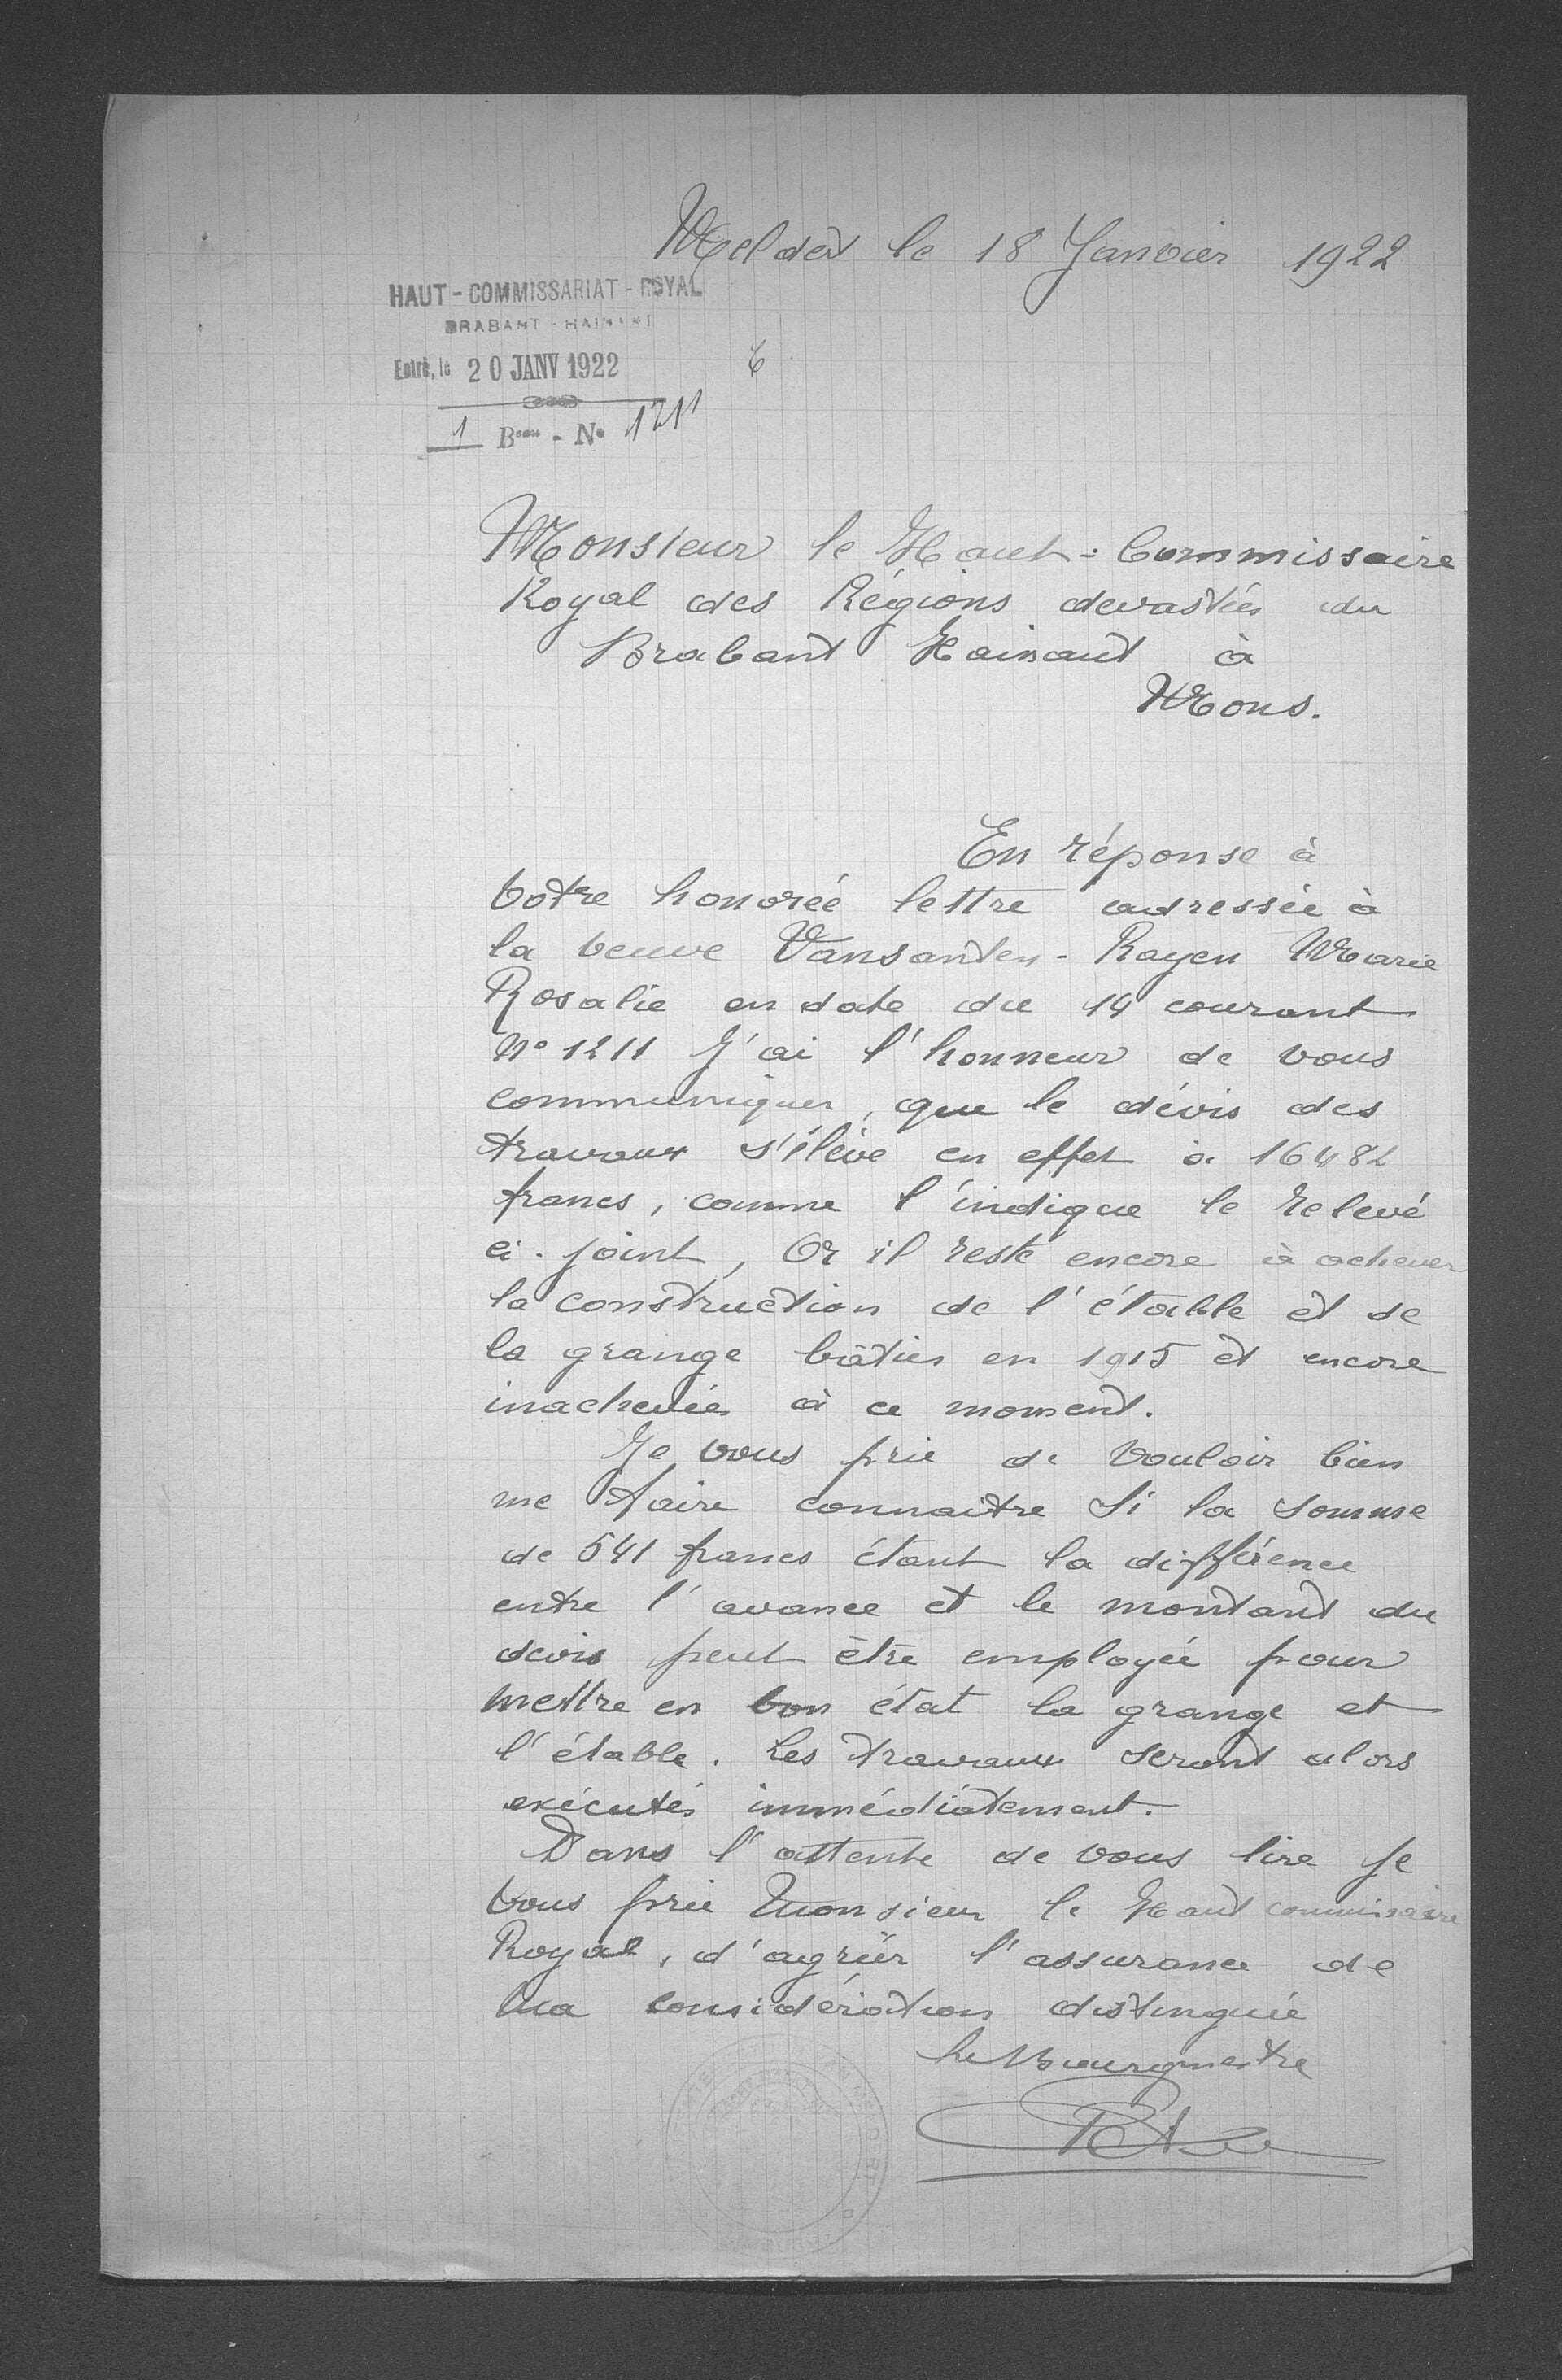 Meldert le 18 Janvier 1922
HAUT-COMMISSARIAT-ROYAL
BRABANT - HAINAUT
Entré, le 20 JANV 1922
1 Beau - No 1211
Monsieur le Haut-Commissaire
Royal des Régions devastées du
Brabant Hainaut à
Mons.
En réponse à
votre honorée lettre adressée à
la veuve Vansanten - Rayen Marie
Rosalie en date du 14 courant
No 1211 J'ai l'honneur de vous
communiquer, que le dévis des
travaux s'élève en effet à 16482
francs, comme l'indique le relevé
ci-joint, Or il reste encore à achever
la construction de l'étable et de
la grange bâties en 1915 et encore
inachevées à ce moment.
Je vous prie de vouloir bien
me faire connaitre si la somme
de 541 francs étant la différence
entre l'avance et le montant du
devis peut être employée pour
mettre en bon état la grange et
l'étable. Les travaux seront alors
exécutés immédiatement.
Dans l'attente de vous lire je
vous prie Monsieur le Haut commissaire
Royal, d'agréer l'assurance de
ma considération distinguée
Le Bourgmestre